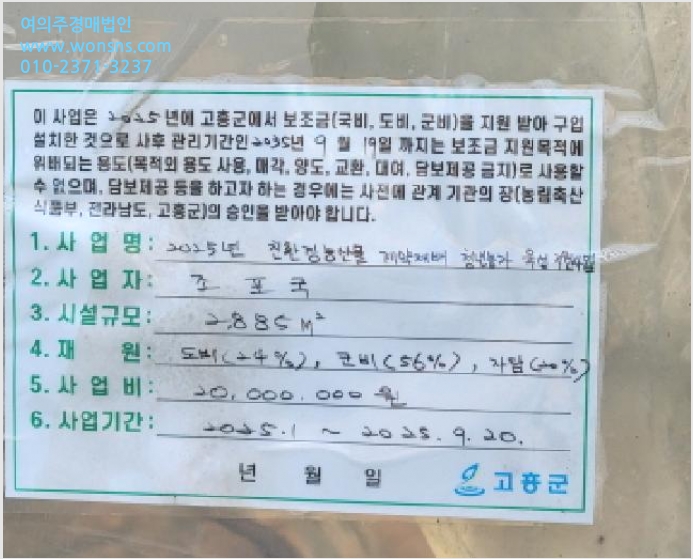 여의주경매법인
www.wonshs.com
010-2371-3237
이 사업은 2025년에 고흥군에서 보조금(국비, 도비, 군비)을 지원 받아 구입
설치한 것으로 사후 관리기간인 2035년 9월 19일 까지는 보조금 지원목적에
위배되는 용도(목적외 용도 사용, 매각, 양도, 교환, 대여, 담보제공 금지)로 사용할
수 없으며, 담보제공 등을 하고자 하는 경우에는 사전에 관계 기관의 장(농림축산
식품부, 전라남도, 고흥군)의 승인을 받아야 합니다.
1. 사 업 명 : 2025년 친환경농산물 계약재배 청년농가 육성
2. 사 업 자 : 조 포 국
3. 시설규모 : 2,885㎡
4. 재 원 : 도비(24%), 군비(56%), 자담(20%)
5. 사 업 비 : 20,000,000원
6. 사업기간 : 2025.1 ~ 2025.9.20.
년 월 일
고흥군